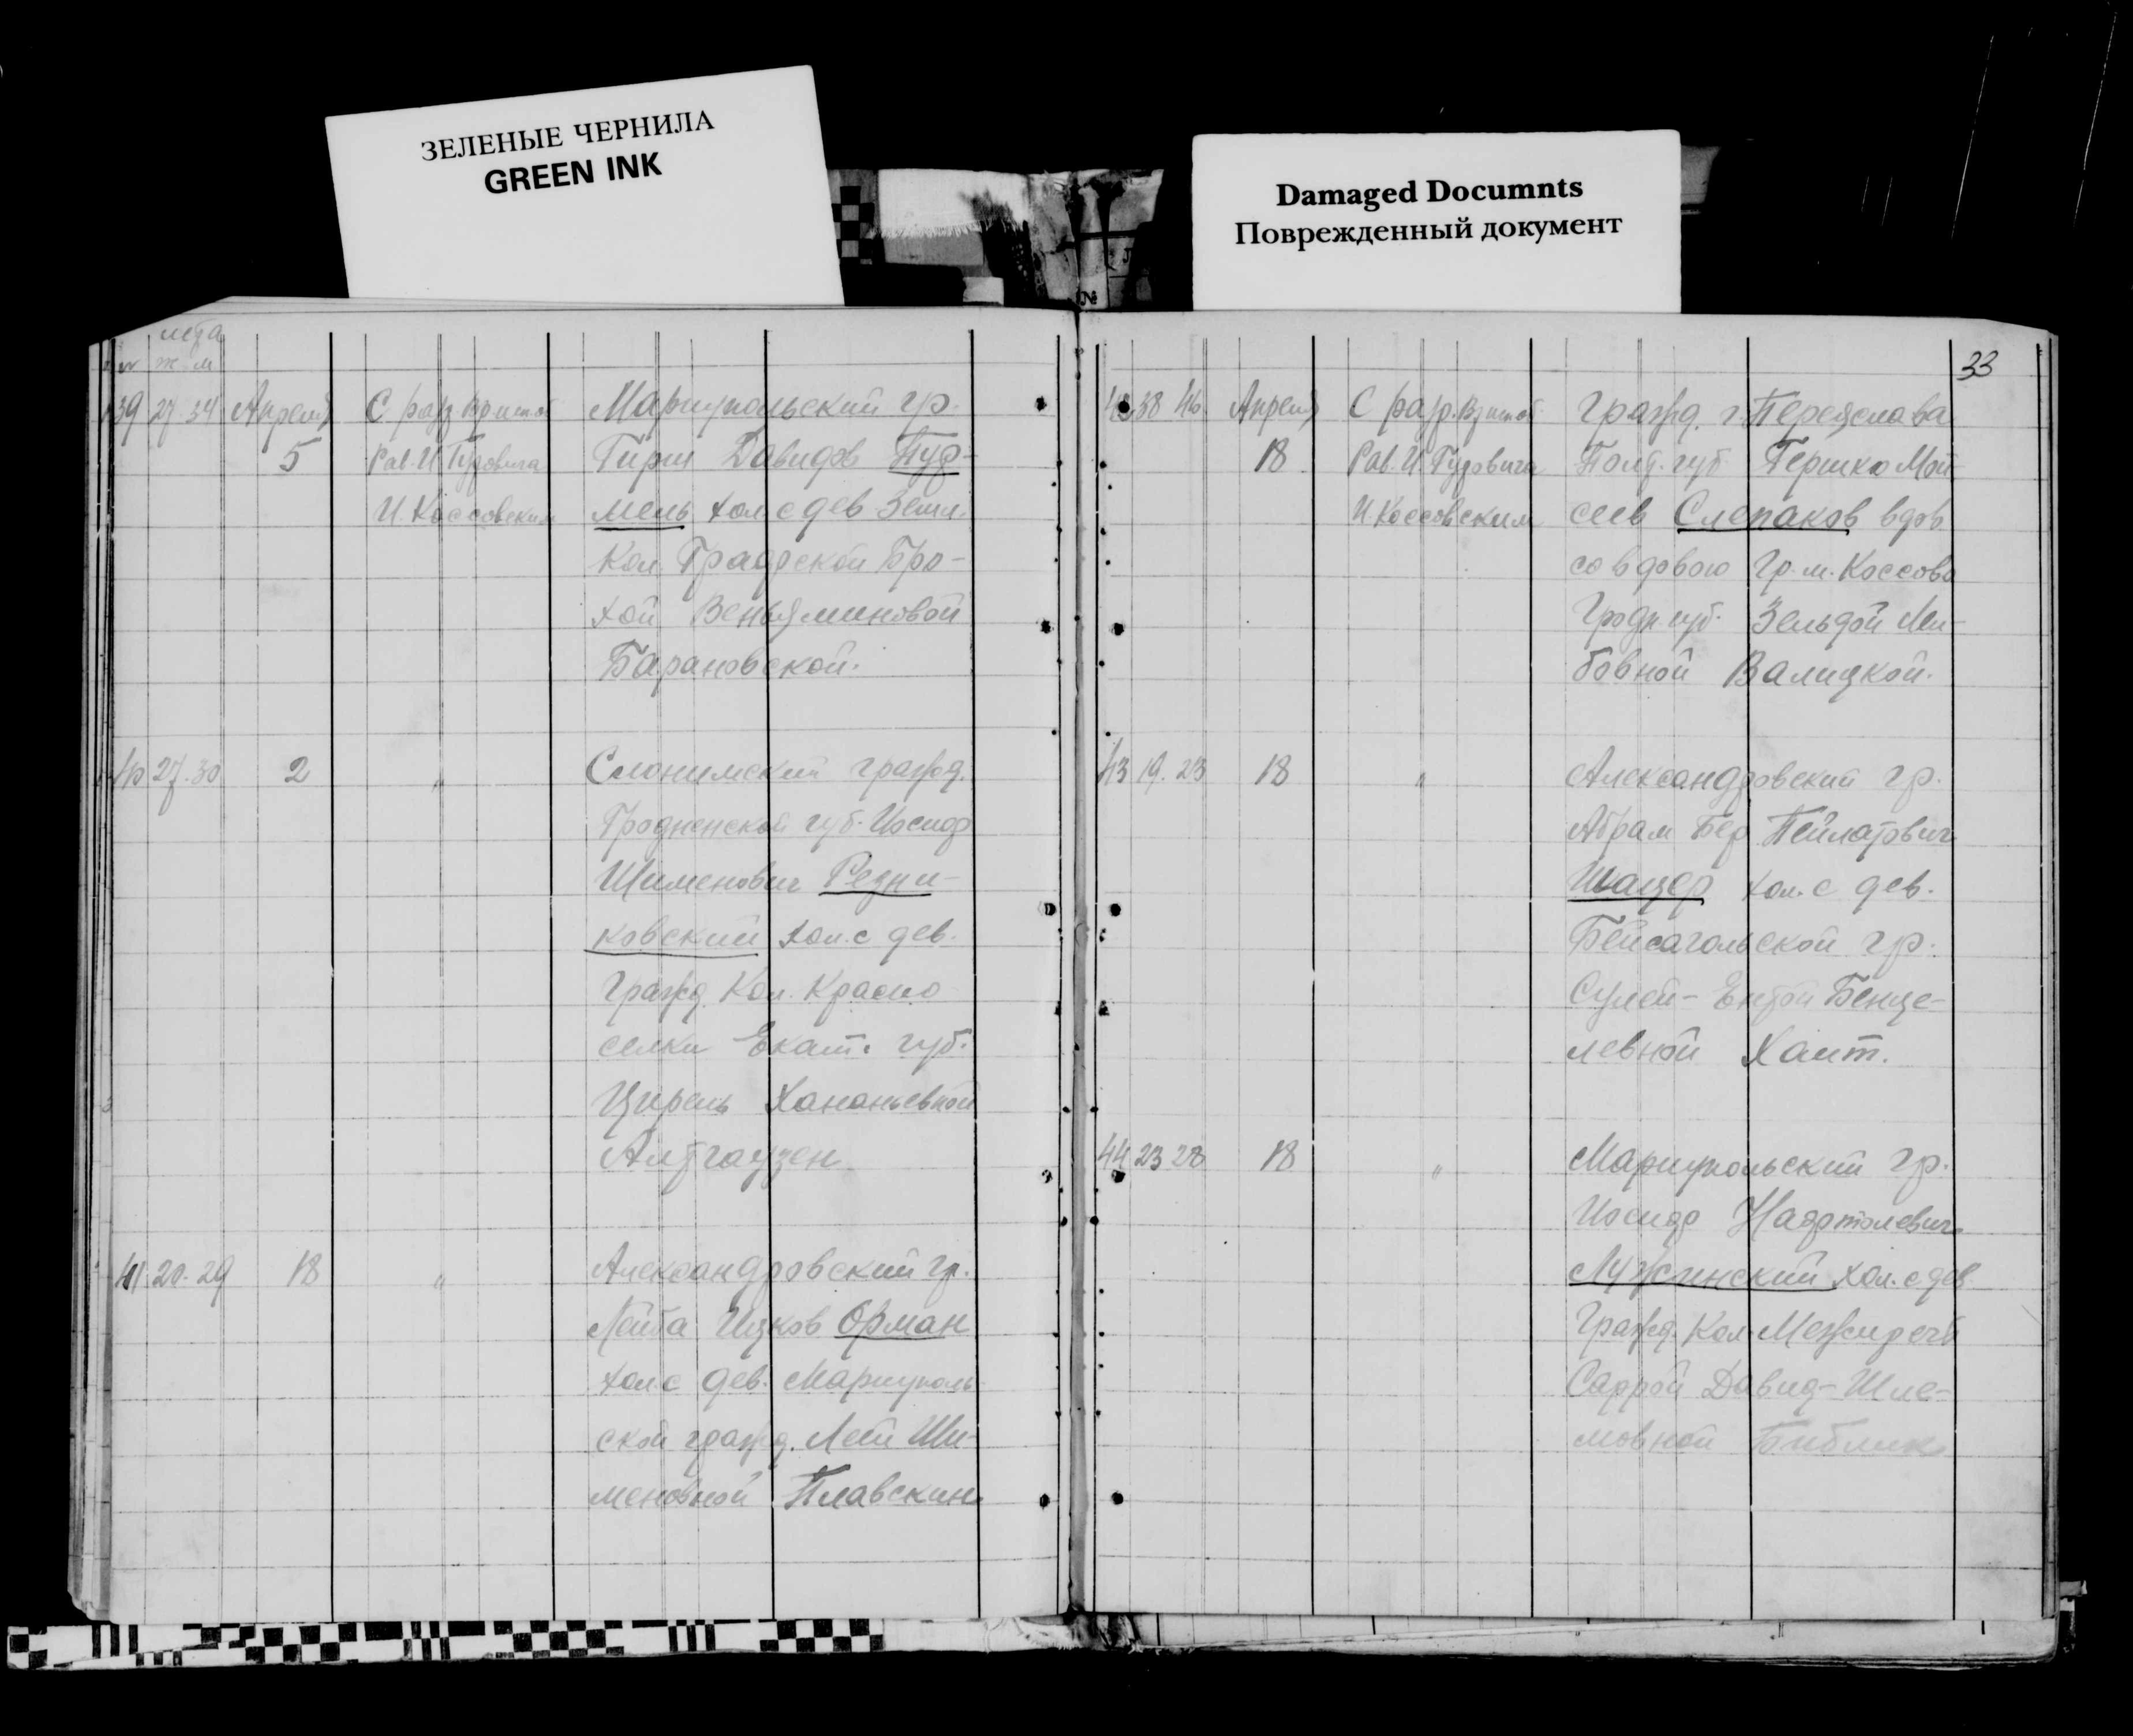 ЗЕЛЕНЫЕ ЧЕРНИЛА
GREEN INK
Damaged Documnts
Поврежденный документ
№
лета
ж. м.
39 27 34 Апреля С разр.
5 Рав. И Гуровича
И. Коссовским
Мариупольский гр.
Гирш Давидов
мель хол с дев Земл.
Кол. Графской Бро-
хой Веньяминовой
Барановской.
40 27. 30 2 "
Слонимский гражд.
Гродненской губ. Иосиф
Шименович Резни-
ковский хол. с дев.
Гражд. Кол. Красно
селки Екат. губ.
Цирель Хананьевной
Алтгаузен
41 20. 29 18 "
Александровский гр.
Лейба Ицков Орман
хол с дев. Мариуполь
ской гражд. Леей Ши-
меновной Плавскин
33
38 46 Апреля С разр.
18 Рав. И. Гуровича
И Коссовским
Гражд. г. Переяслава
Полт. губ. Гершко Мой
сеев Слепаков вдов
со вдовою Гр. м. Коссово
Гродн губ. Зельдой Лей-
бовной Валицкой.
43 19. 23 18 "
Александровский гр.
Абрам Бер
Шацер хол. с дев.
Бейсагольской гр.
Ентой Бенце-
левной Хаит.
44 23 28 18 "
Мариупольский гр.
Иосиф Нафтолевич
Лужинский хол. с дев
Гражд. Кол. Межиречь
Саррой Давид-Шле-
мовной Библик